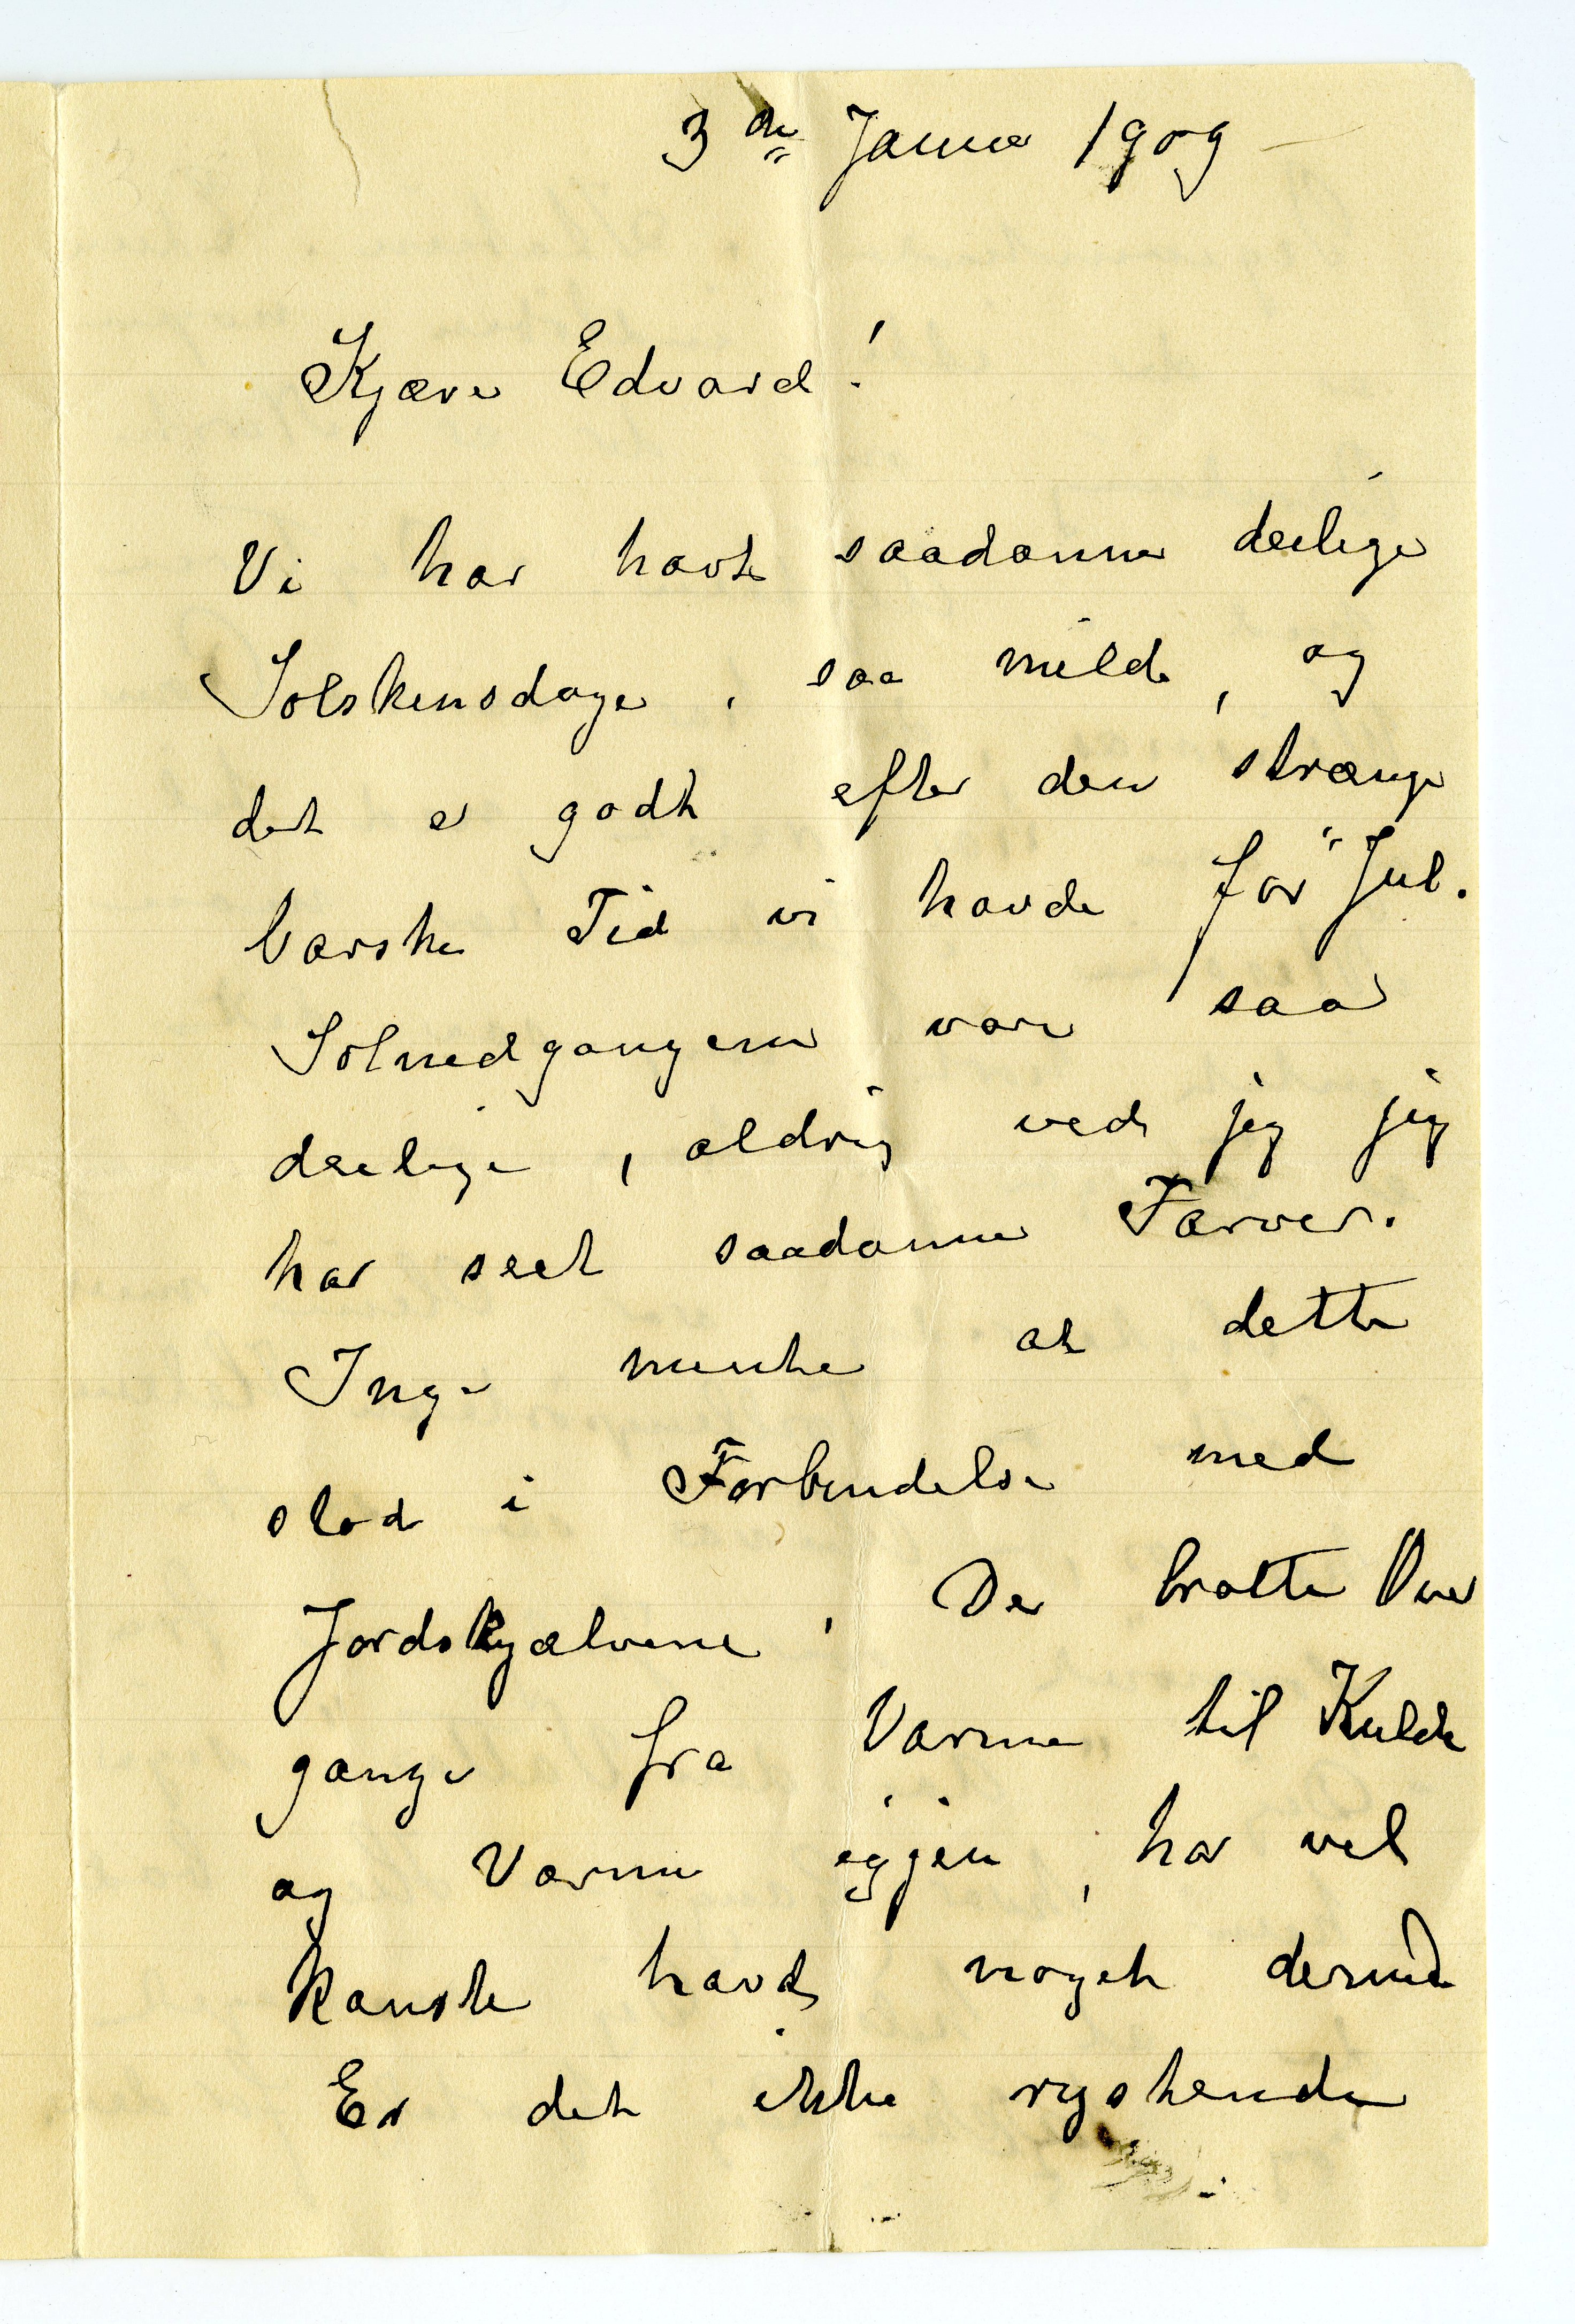 3de Januar 1909
Kjære Edvard!
Vi har havt saadanne deilige
Solskensdage, saa milde, og
det er godt efter den strænge
barske Tid vi havde før Jul.
Solnedgangene var saa
deilige, aldrig ved jeg jeg
har seet saadanne Farver.
Inger mente at dette
stod i Forbindelse med
Jordskjælvene. De bratte Over
gange fra Varme til Kulde
og Varme igjen, har vel
kanske havt noget dermed
Er det ikke rystende